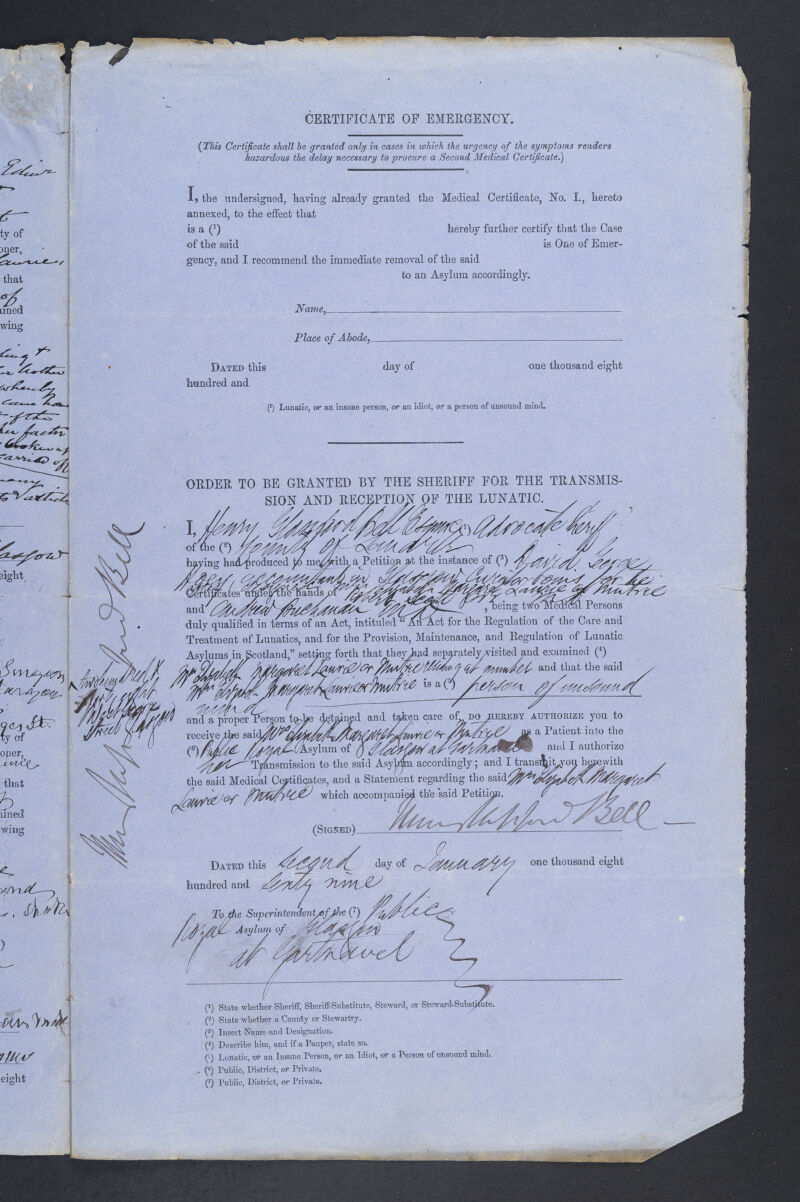 CERTIFICATE OF EMERGENCY.
(This Certificate shall be granted only in cases in which the urgency of the symptoms renders
hazardous the delay necessary to procure a Second Medical Certificate.)
I, the undersigned, having already granted the Medical Certificate, No. I., hereto
annexed, to the effect that
is a (1) hereby further certify that the Case
of the said is One of Emer-
gency, and I recommend the immediate removal of the said
to an Asylum accordingly.
Name,
Place of Abode,
DATED this day of one thousand eight
hundred and
(1) Lunatic, or an insane person, or an idiot, or a person of unsound mind.
ORDER TO BE GRANTED BY THE SHERIFF FOR THE TRANSMIS-
SION AND RECEPTION OF THE LUNATIC.
I, Henry Glassford Bell Esquire (1) Advocate Sheriff
of the (2) County of Lanark
having had produced to me, with a Petition at the instance of (3) David George
accountant in Glasgow Curator bonis for the
Certificates under the hands of Laurie or Mutrie
and Andrew Buchanan , being two Medical Persons
duly qualified in terms of an Act, intituled "An Act for the Regulation of the Care and
Treatment of Lunatics, and for the Provision, Maintenance, and Regulation of Lunatic
Asylums in Scotland," setting forth that they had separately visited and examined (4)
Mrs Elizabeth Margaret Laurie or Mutrie residing at number and that the said
Mrs Elizabeth Margaret Laurie or Mutrie is a (5) person of unsound
mind
and a proper Person to be detained and taken care of, DO HEREBY AUTHORIZE you to
receive the said Mrs Elizabeth Margaret Laurie or Mutrie as a Patient into the
(6) Public Royal Asylum of Glasgow at Gartnavel and I authorize
her Transmission to the said Asylum accordingly; and I transmit you herewith
the said Medical Certificates, and a Statement regarding the said Mrs Elizabeth Margaret
Laurie or Mutrie which accompanied the said Petition.
(SIGNED) Henry Glassford Bell
DATED this Second day of January one thousand eight
hundred and Sixty nine
To the Superintendent of the (7) Public
Royal Asylum of Glasgow
at Gartnavel
(1) State whether Sheriff, Sheriff-Substitute, Steward, or Steward-Substitute.
(2) State whether a County or Stewartry.
(3) Insert Name and Designation.
(4) Describe him, and if a Pauper, state so.
(5) Lunatic, or an Insane Person, or an Idiot, or a Person of unsound mind.
(6) Public, District, or Private.
(7) Public, District, or Private.
two hundred &
eight
Street Glasgow
Henry Glassford Bell
ty of
oner,
that
ined
wing
Glasgow
eight
Surgeon
Glasgow
St.
ty of
oner,
that
ined
wing
eight